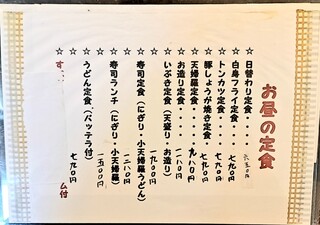 お昼の定食
☆ 日替わり定食・・・・ 六五〇円
☆ 白身フライ定食・・・ 七九〇円
☆ トンカツ定食・・・・ 七九〇円
☆ 豚しょうが焼き定食・ 七九〇円
☆ 天婦羅定食・・・・・ 九八〇円
☆ お造り定食・・・・・ 一一八〇円
☆ いぶき定食（天盛り・お造り） 一九〇〇円
☆ 寿司定食（にぎり・小天婦羅うどん） 一二八〇円
☆ 寿司ランチ（にぎり・小天婦羅） 一五〇〇円
☆ うどん定食（バッテラ付） 七九〇円
☆ す
ム付